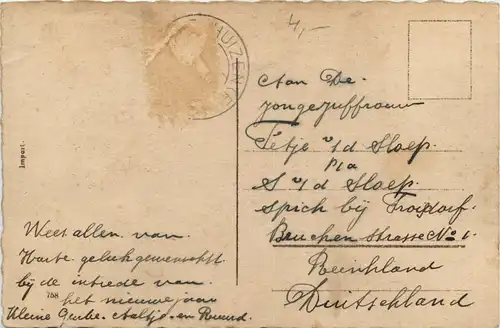 4,-
HUIZEN
Import.
Aan De
Jongejuffrouw
Tetje v/d Sloep.
p/a
S v/d Sloep.
Spich bij Troisdorf.
Bruchen Strasse No 1.
Reinhland
Duitschland
Weest allen van
Harte gelukgewenscht
bij de intrede van
758
het nieuwe jaar
Kleine Gerbe. Aaltje en Ruurd.